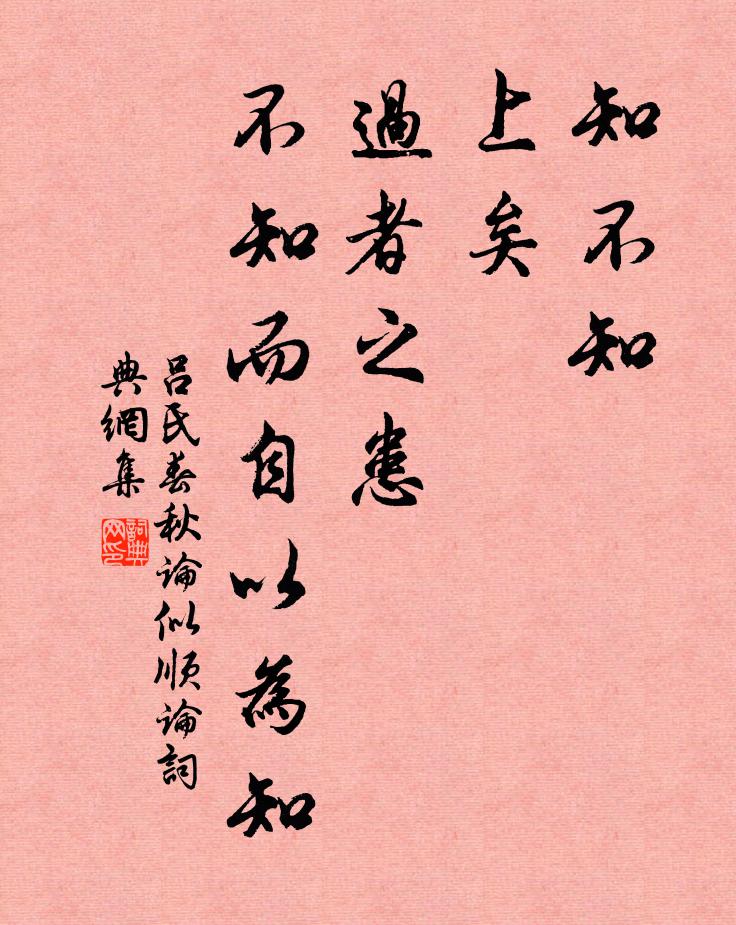 知不知
上矣
過者之患
不知而自以為知
吕氏春秋論似順論詞
典網集
詞典
网印